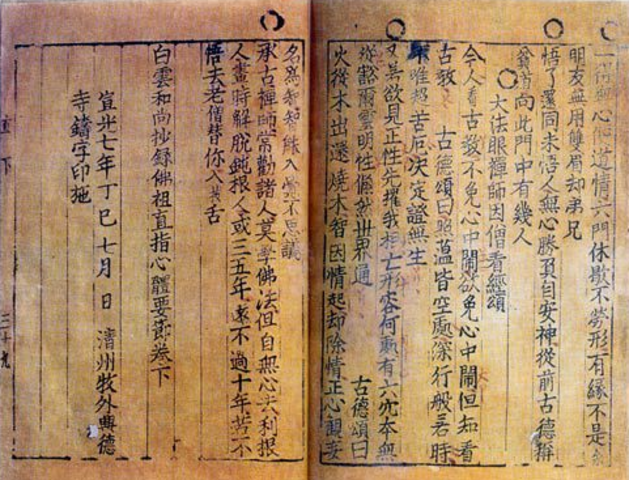 一得無心便道情六門休歇不勞形有緣不是
明友無用雙眉却弟兄
悟了還同未悟人無心勝負自安神從前古德稱
貧道向此門中有幾人
大法眼禪師因僧看經頌
今人看古敎不免心中鬧欲免心中鬧但知看
古敎 古德頌曰照蘊皆空處深行般若時
唯超苦厄決定證無生
又若欲見正性先我相七何有六本無
豁爾雲明性翛然世界通 古德頌曰
火從木出還燒木智因情起却除情正心觀妄
名爲智智能入不思議
承古禪師常勸諸人莫學佛法但自無心去利根
人晝時解脫鈍根人或三五年遠不過十年若不
悟去老僧替你入拔舌
白雲和尙抄錄佛祖直指心體要節卷下
宣光七年丁巳七月 日 淸州牧外興德
寺鑄字印施
直 下 三十九